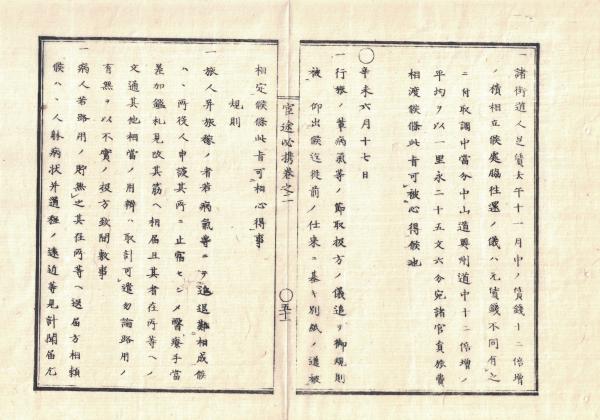 一諸街道人足賃去午十一月中ノ賃錢ヨリ二倍增
ノ積相立候處脇往還ノ儀ハ元賃錢不同有之
ニ付取調中當分中山道奧刕道中十二倍增ノ
平均ヲ以一里永二十五文六分宛諸官員旅費
相渡候條此旨可被心得候也
〇辛未六月十七日
一行旅ノ輩病氣等ノ節取扱方ノ儀追テ御規則
被 仰出候迄從前ノ仕來ニ基キ別紙ノ通被
官途必携卷之二
〇五十二
相定候條此旨可相心得事
規則
一旅人幷旅稼ノ者若病氣等ニテ進退難相成候
ハヽ所役人申談其所ニ止宿セシメ醫療手當
差加鑑札見改其筋ヘ相屆且其者在所等ヘノ
文通其他相當ノ用辨ハ取計可遣勿論路用ノ
有無ヲ以不實ノ扱方致間敷事
一病人若路用ノ貯無之其在所等ヘ送屆方相賴
候ハヽ人躰病狀幷道程ノ遠近等見計聞屆尤